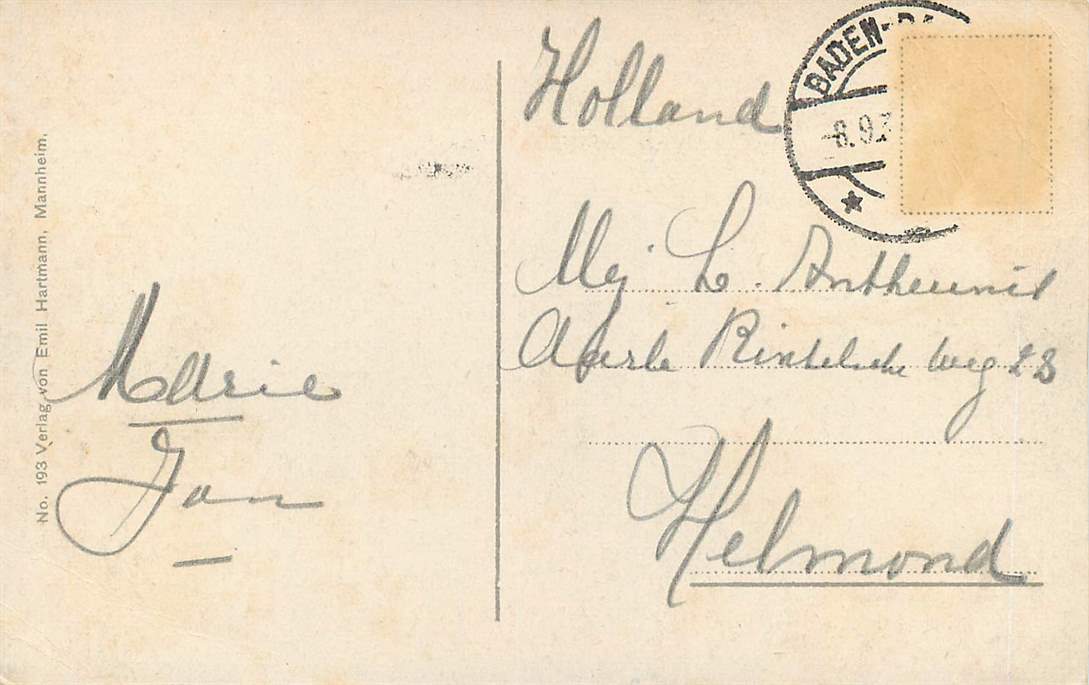 No. 193 Verlag von Emil Hartmann, Mannheim.
Marie
Jan
Holland
BADEN-BA
-8.9.2
Mej L. Antheunis
Aarle Rixtelsche weg 23
Helmond